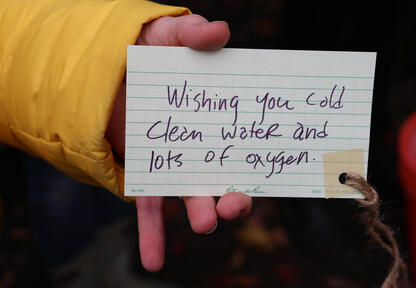 Wishing you cold
Clean water and
lots of oxygen.